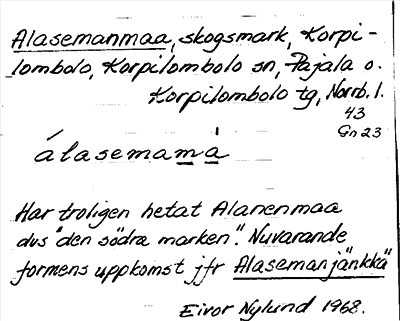 Alasemanmaa, skogsmark, Korpi-
lombolo, Korpilombolo sn, Pajala o.
Korpilombolo tg, Norrb. l.
43
Gn 23
álasemamà
Har troligen hetat Alanenmaa
dvs "den södra marken". Nuvarande
formens uppkomst jfr Alasemanjänkkä"
Eivor Nylund 1968.